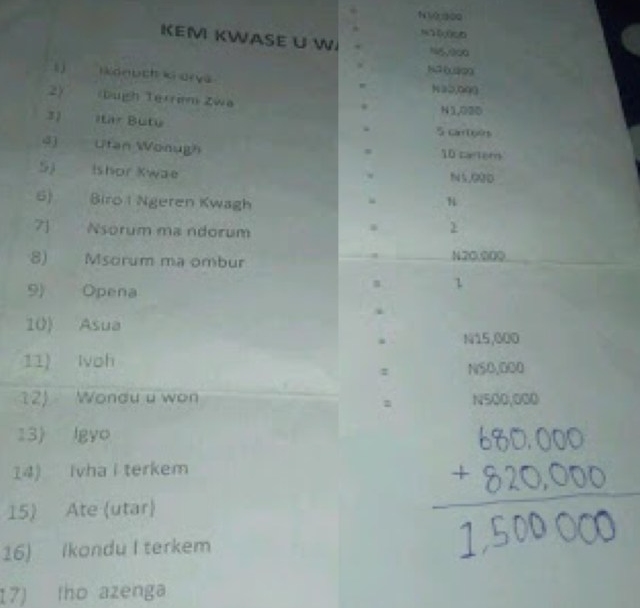 KEM KWASE U
1) Ikonuch ki orya
2) Ibugh Terrem Zwa
3) Itar Butu
4) Utan Wonugh
5) Ishor Kwae
6) Biro I Ngeren Kwagh
7) Nsorum ma ndorum
8) Msorum ma ombur
9) Opena
10) Asua
11) Ivoh
12) Wondu u won
13) Igyo
14) Ivha i terkem
15) Ate (utar)
16) Ikondu I terkem
17) Iho azenga
= N10,000
= N10,000
= N5,000
= N20,000
= N10,000
= N1,000
= 5 cartons
= 10 cartons
= N1,000
= N
= 2
= N20.000
= 1
=
= N15,000
= N50,000
= N500,000
680.000
+ 820,000
1,500 000